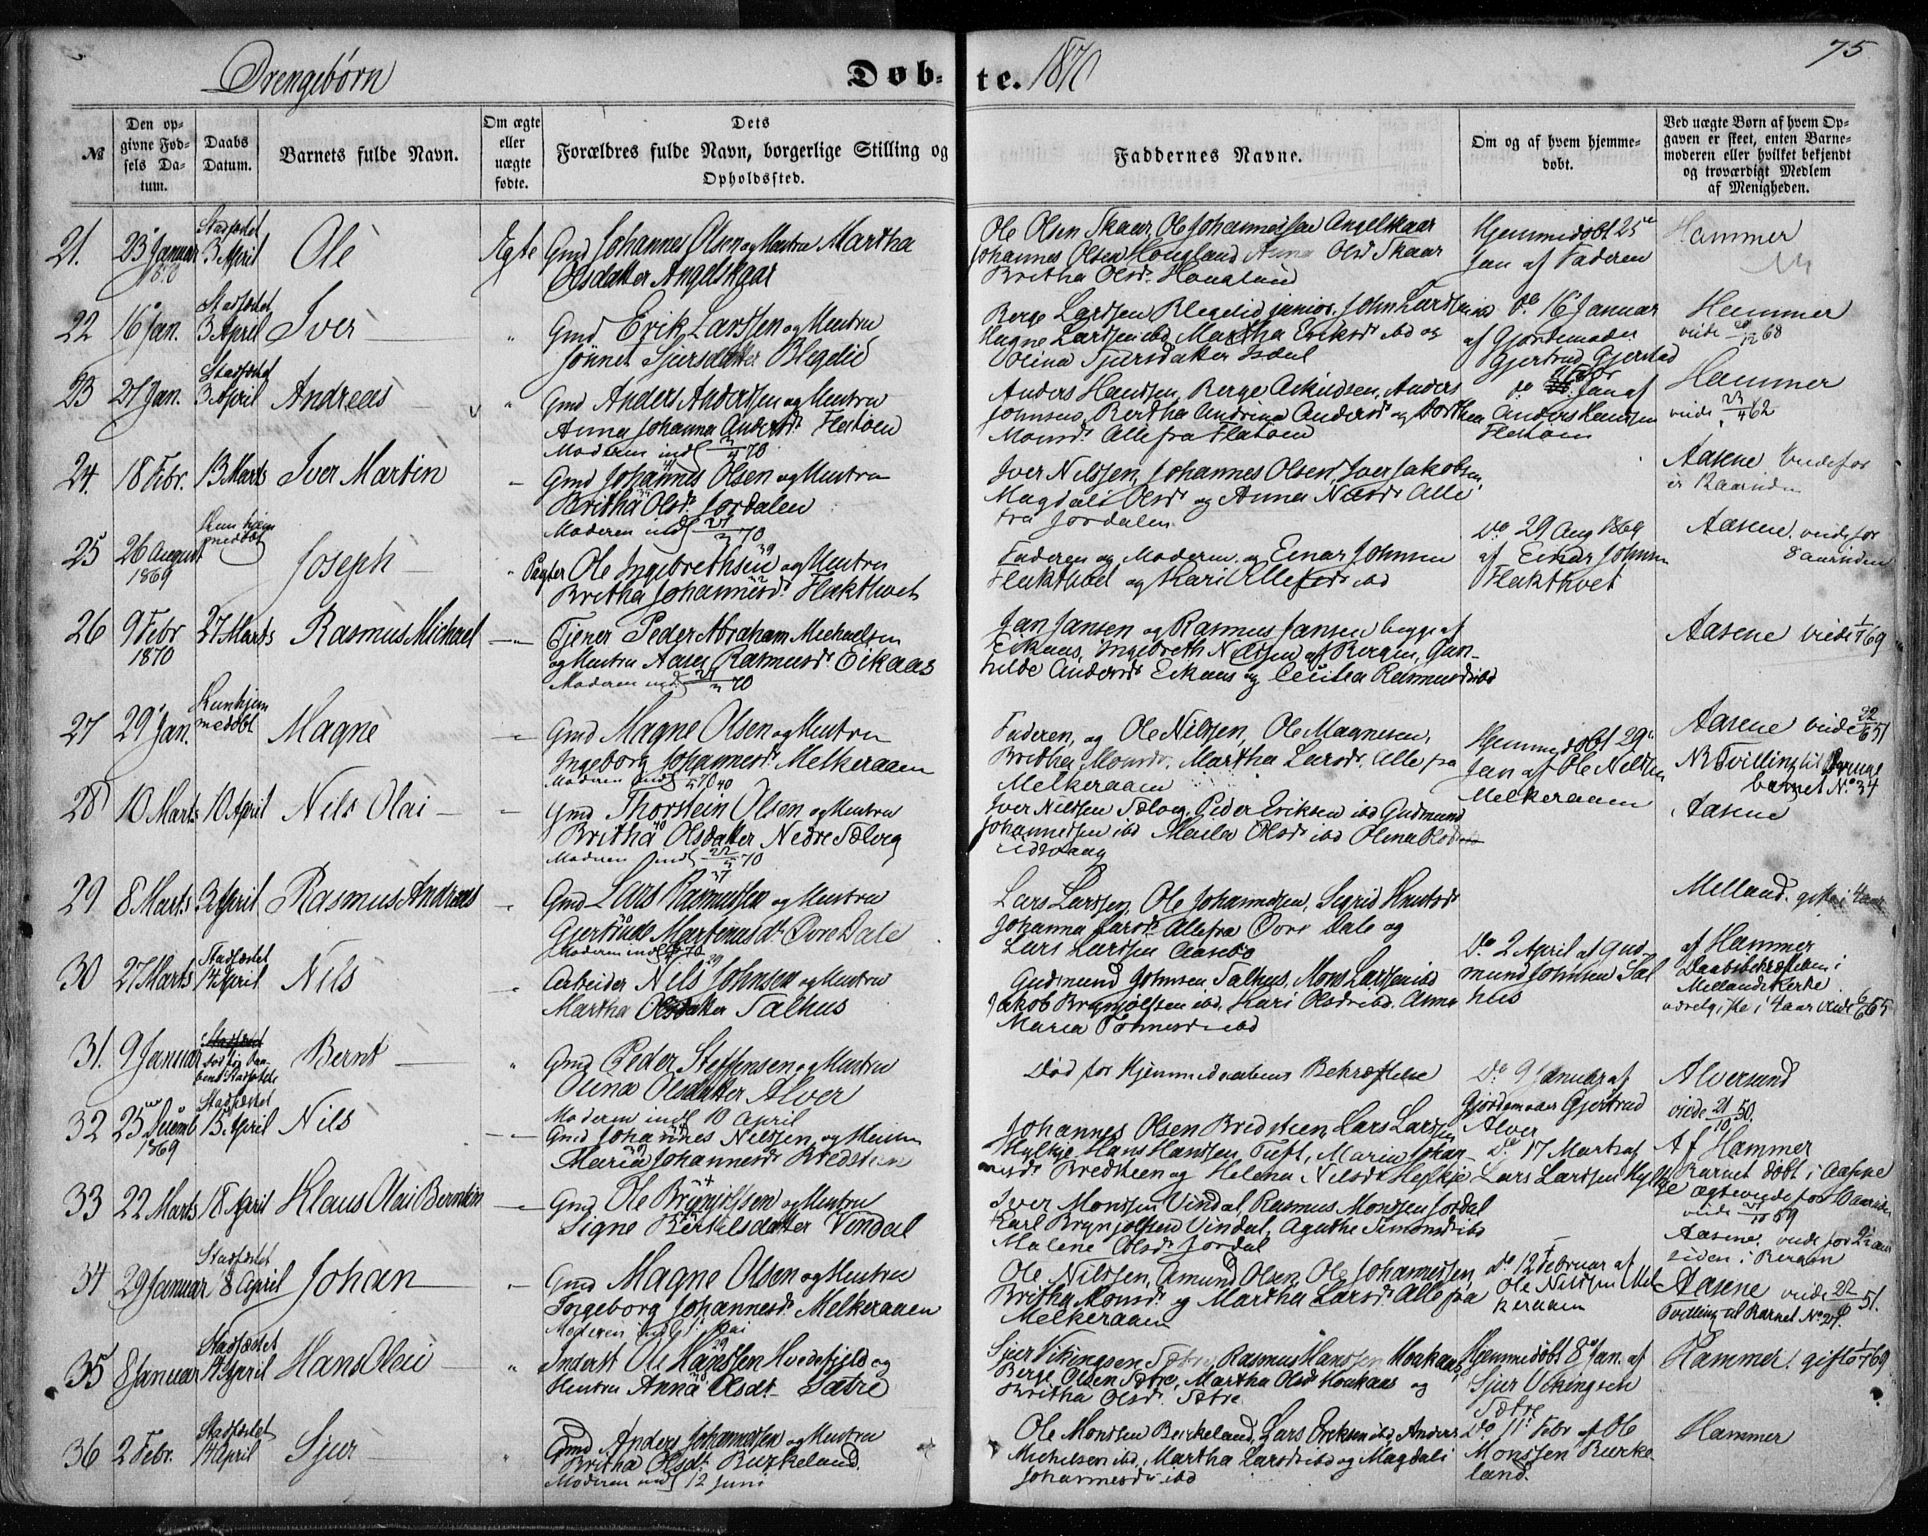 75
Drengebørn Døb-te. 1870
№
Den op-
givne Fød-
sels Da-
tum.
Daabs
Datum.
Barnets fulde Navn.
Om ægte
eller
uægte
fødte.
Dets
Forældres fulde Navn, borgerlige Stilling og
Opholdssted.
Faddernes Navne.
Om og af hvem hjemme-
døbt.
Ved uægte Børn af hvem Op-
gaven er skeet, enten Barne-
moderen eller hvilket bekjendt
og troværdigt Medlem
af Menigheden.
21. 23 Januar 1870
Stadfæstet 3 April
Ole
Egte
Gmd Johannes Olsen og Hustru Martha
Olsdatter Angelskaar
Ole Olsen Skaar, Ole Johannessen Angelskaar
Johannes Olsen Hougland Anna Olsd Skaar
Britha Olsdr Hougland
Hjemmedøbt 25
Jan af Faderen
Hammer
22 16 Jan.
Stadfæstet 3 April
Iver
Gmd Erik Larssen og Hustru
Jønnet Sjursdatter Blegelid
Berge Larssen Blegelid junior, John Larssen ibd
Magne Larssen ibd Martha Eriksdr ibd og
Olina Sjursdatter
Do 16 Januar
af Gjordemoder
Gjertrud Gjerstad
Hammer
viede 68
23 21 Jan.
Stadfæstet 3 April
Andreas
Gmd Anders Anderssen og Hustru
Anna Johanna Andersdr Flatøen
Moderen indl 70
Anders Hanssen, Berge Askildsen, Anders
Johnsen, Bertha Andrina Andersdr og Dorthea
Monsdr Alle fra Flatøen
Do Jan af
Anders Hanssen
Flatøen
Hammer
viede 23/4 62
24. 18 Febr. 13 Marts Iver Martin
Gmd Johannes Olsen og Hustru
Britha Olsdr Jordalen
Moderen indl 70
Iver Nilssen, Johannes Olsen, Iver Jakobsen,
Magdali Olsdr og Anna Nilsdr Alle
fra Jordalen
Aasene viede for
Aar siden
25 26 August 1869
Kun hjemmedøbt
Joseph
Pagter Ole Ingebrethsen og Hustru
Britha Johannesdr Flukthvet
Faderen og Moderen og Einar Johnsen
Flukthvet og Kari ibd
Do 29 Aug 1869
af Einar Johnsen
Flukthvet
Aasene. viede for
8 aar siden
26 9 Febr 1870
27 Marts Rasmus Michael
Tjener Peder Abraham Michelsen
og Hustru Aase Rasmusdr Eikaas
Moderen indl 70
Jan Jansen og Rasmus Jansen begge af
Eikaas, Ingebreth Nilssen af Bergen, Gun-
hilde Andersdr Eikaas og Cecilia Rasmusdr ibd
Aasene viede 69
27 29 Jan.
Kun hjemmedøbt
Magne
Gmd Magne Olsen og Hustru
Ingeborg Johannesdr Melkeraaen
Moderen indl 70
Faderen, og Ole Nilssen, Ole Magnesen,
Britha Monsdr, Martha Larsdr Alle fra
Melkeraaen
Hjemmedøbt 29
Jan af Ole Nilssen
Melkeraaen
Aasene viede 22/6 51
NB Tvilling til
barnet No 34
28 10 Marts 10 April Nils Olai
Gmd Thorstein Olsen og Hustru
Britha Olsdatter Nedre Tælvig
Moderen indl 70
Iver Nilssen Tælvig, Peder Eriksen ibd Gudmund
Johannessen ibd Olsdr ibd Olena
Eidsvaag
Aasene
29 8 Marts 3 April Rasmus Andreas
Gmd Lars Rasmussen og Hustru
Gjertrude Martinusdr Øvre Dale
Moderen indl 70
Lars Larssen, Ole Johannessen, Sigrid Knutsdr
Johanna Larsdr Alle fra Øvre Dale og
Lars Larssen Aasebø
Melland. gifte i 4 aar
30 27 Marts
Stadfæstet 14 April
Nils
Arbeider Nils Johnsen og Hustru
Martha Olsdatter Salhus
Gudmund Johnsen Salhus, Mons Larssen ibd
Jakob Brynjolfsen ibd, Kari Olsdr ibd. Anna
Maria ibd
Do 2 April af Gud-
mund Johnsen Sal
hus
af Hammer
Daabsbekræftelsen i
Mellands Kirke
viede 6/6 65
31. 9 Januar
Bernt
Gmd Peder Steffensen og Hustru
Olina Olsdatter Alver
Moderen indl 10 April
Død før Hjemmedaabens Bekræftelse
Do 9 Januar af
Gjordemoder Gjertrud
Alver
Alversund
viede 21/10 50.
32 25 Decemb 1869
Stadfæstet 15 April
Nils
Gmd Johannes Nilssen og Hustru
Maria Johannesdr Bredstien
Johannes Olsen Bredstien, Lars Larssen
Hylkje Hans Hanssen Tuft, Maren Johan-
nesdr Bredstien og Helena Nilsdr Hylkje
Do 17 Marts af
Lars Larssen Hylkje
Af Hammer
Barnet døbt i Aasene
33 22 Marts 18 April Klaus Olai Berntin
Gmd Ole Brynjolfsen og Hustru
Signe Bertilsdatter Vindal
Iver Monssen Vindal, Rasmus Monssen Jordal
Karl Brynjolfsen Vindal, Agathe Simonsdr ibd
Malene Olsdr Jordal
viede 59
Aasene. viede for 2½ aar
siden i Bergen
34 29 Januar
Stadfæstet 8 April
Johan
Gmd Magne Olsen og Hustru
Ingeborg Johannesdr Melkeraaen
Moderen indl 1 Mai
Ole Nilssen, Amund Olsen, Ole Johannessen,
Britha Monsdr og Martha Larsdr Alle fra
Melkeraaen
Do 12 Februar af
Ole Nilssen Mel-
keraaen
Aasene viede 22/6 51.
Tvilling til Barnet No 27.
35 8 Januar
Stadfæstet 14 April
Hans Olai
Inderst Ole Hanssen Hvedefjeld og
Hustru Anna Olsdr Sætre
Sjur Vikingsen Sætre, Rasmus Hanssen Haukaas,
Berge Olsen Sætre, Martha Olsdr Haukaas og
Britha Olsdr Sætre
Hjemmedøbt 8 Jan. af
Sjur Vikingsen
Sætre
Hammer! gifte 69
36 2 Febr.
Stadfæstet 14 April
Sjur
Gmd Anders Johannessen og Hustru
Britha Olsdr Birkeland.
Moderen indl 12 Juni
Ole Monssen Birkeland, Lars Eriksen ibd, Anders
Michelsen ibd, Martha Larsdr ibd og Magdali
Johannesdr ibd
Do 11 Febr af Ole
Monssen Birke-
land.
Hammer